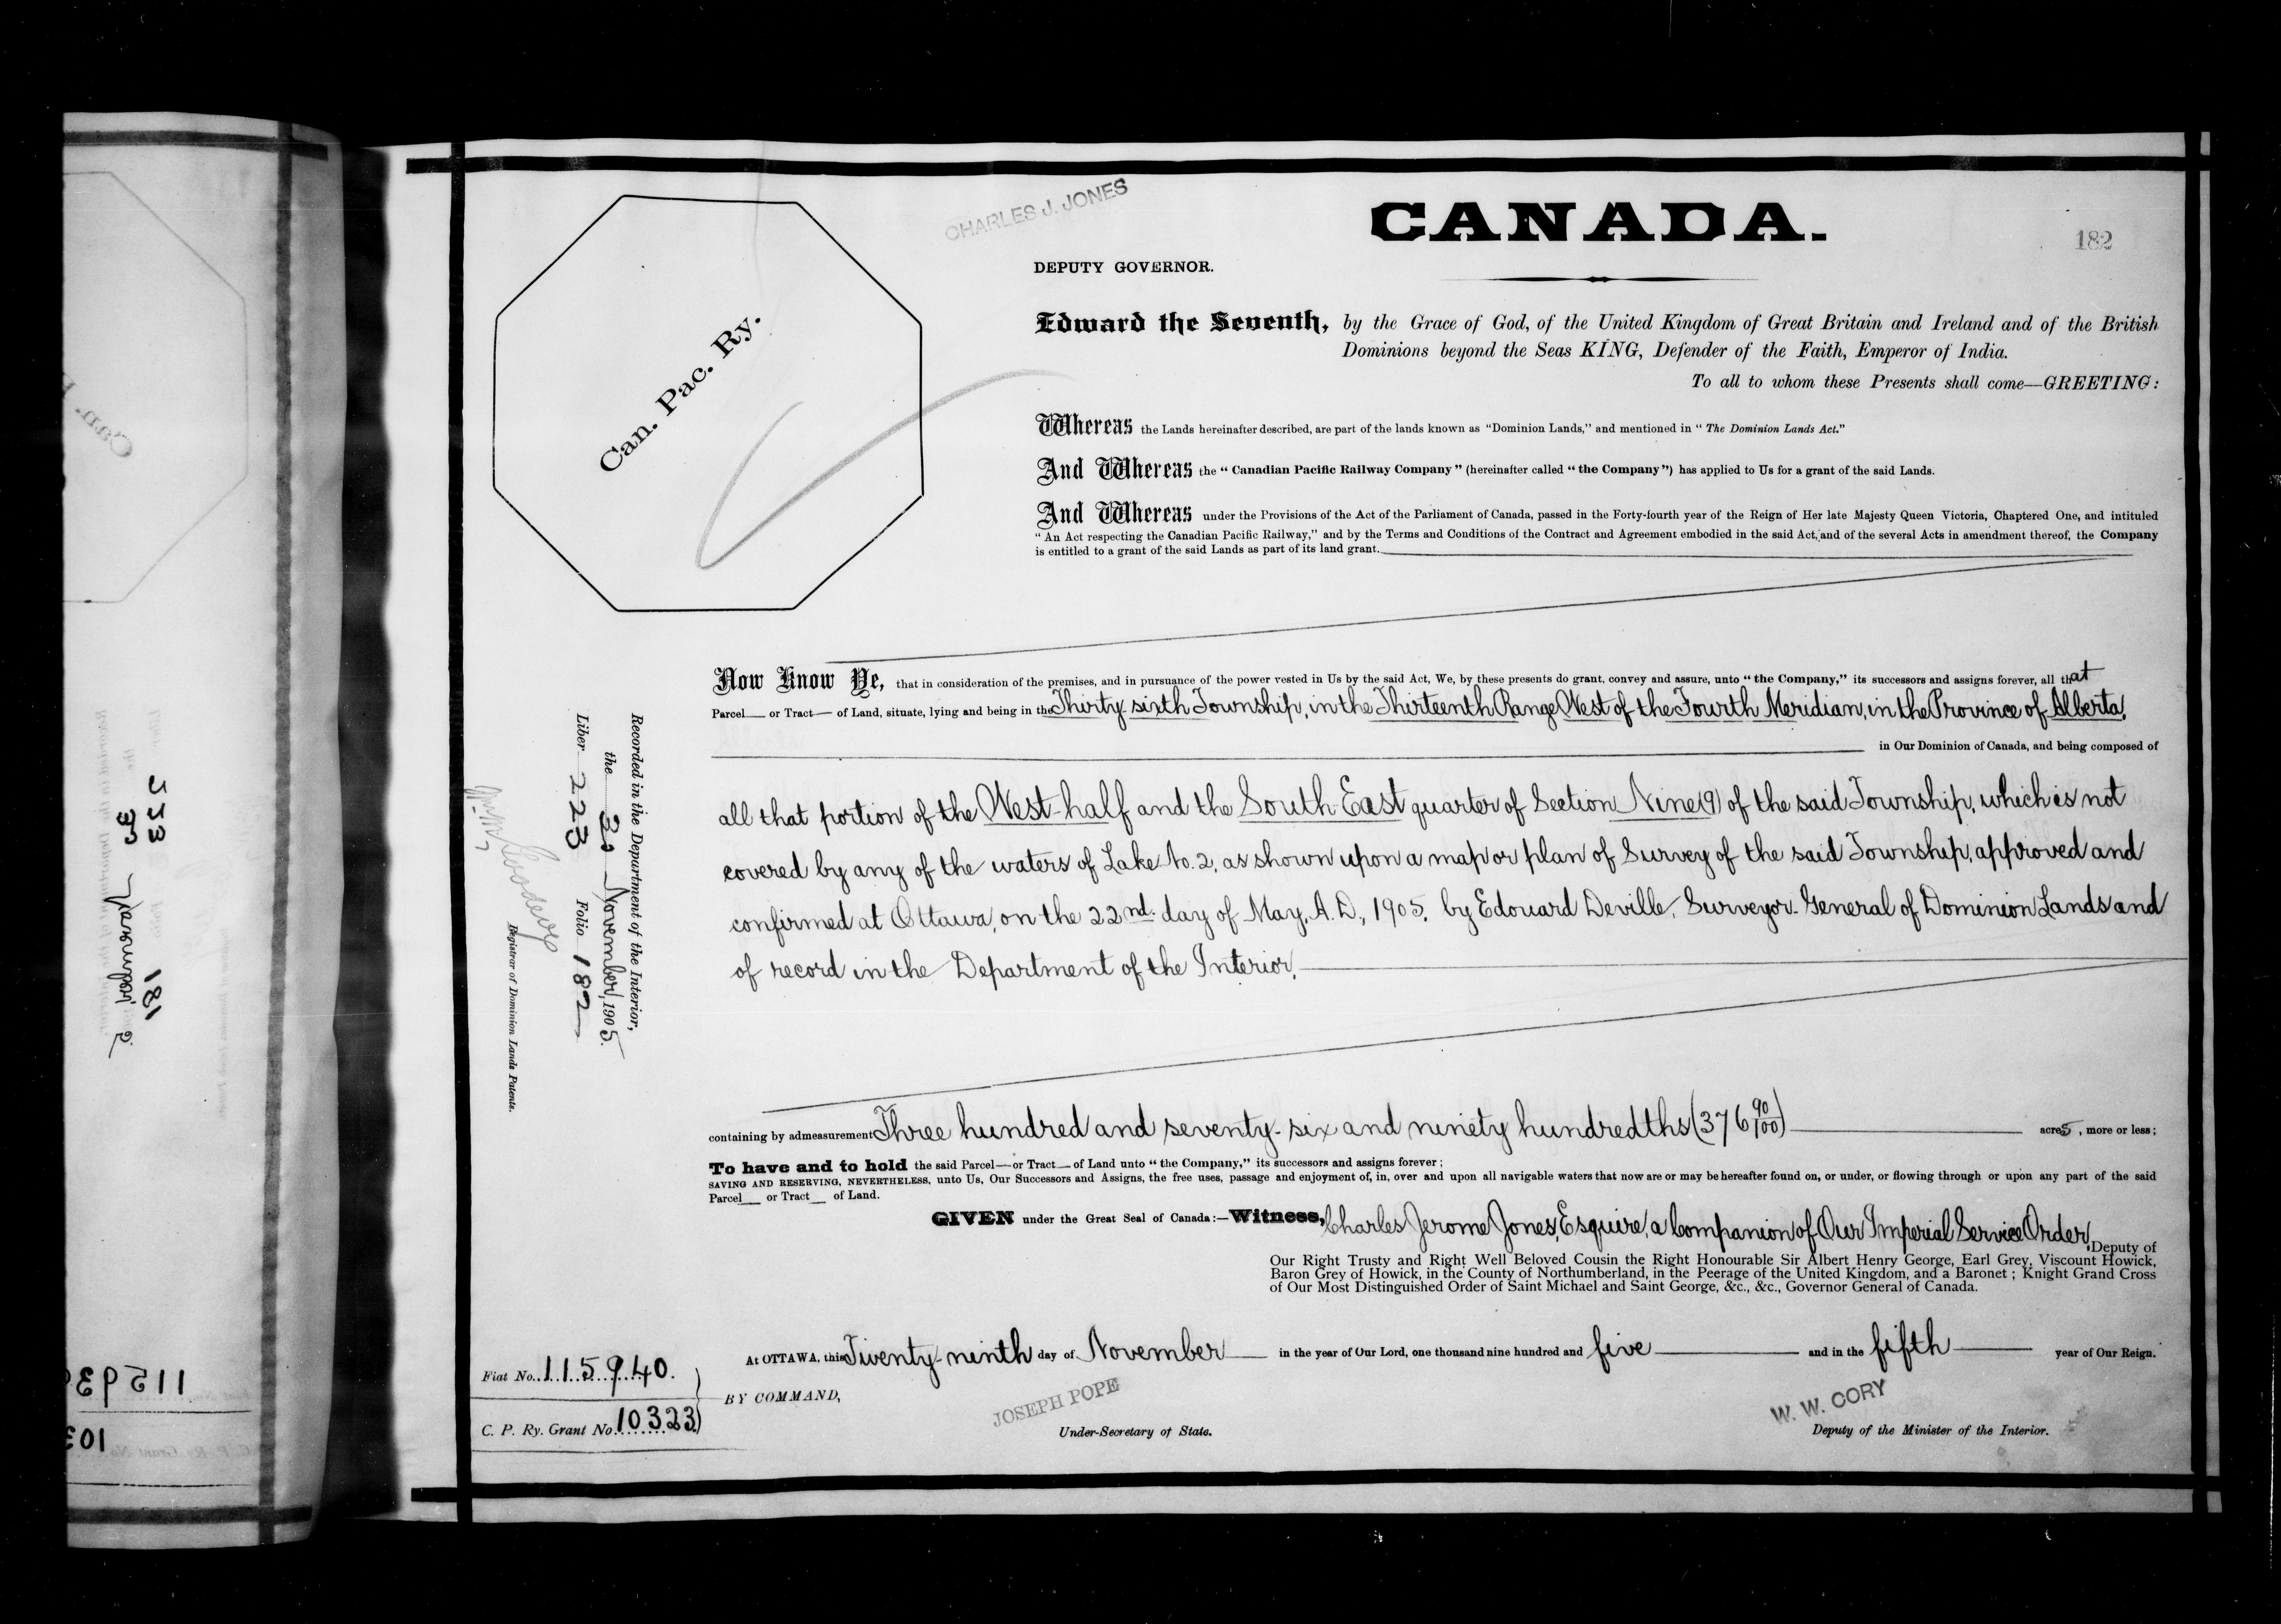 CHARLES J. JONES
CANADA.
182
DEPUTY GOVERNOR.
Can. Pac. Ry.
Edward the Seventh, by the Grace of God, of the United Kingdom of Great Britain and Ireland and of the British
Dominions beyond the Seas KING, Defender of the Faith, Emperor of India.
To all to whom these Presents shall come—GREETING:
Whereas the Lands hereinafter described, are part of the lands known as "Dominion Lands," and mentioned in "The Dominion Lands Act."
And Whereas the "Canadian Pacific Railway Company" (hereinafter called "the Company") has applied to Us for a grant of the said Lands.
And Whereas under the Provisions of the Act of the Parliament of Canada, passed in the Forty-fourth year of the Reign of Her late Majesty Queen Victoria, Chaptered One, and intituled
"An Act respecting the Canadian Pacific Railway," and by the Terms and Conditions of the Contract and Agreement embodied in the said Act, and of the several Acts in amendment thereof, the Company
is entitled to a grant of the said Lands as part of its land grant.
Now Know Ye, that in consideration of the premises, and in pursuance of the power vested in Us by the said Act, We, by these presents do grant, convey and assure, unto "the Company," its successors and assigns forever, all that
Parcel or Tract of Land, situate, lying and being in the Thirty-sixth Township, in the Thirteenth Range West of the Fourth Meridian, in the Province of Alberta,
in Our Dominion of Canada, and being composed of
all that portion of the West-half and the South-East quarter of Section Nine (9) of the said Township, which is not
covered by any of the waters of Lake No. 2, as shown upon a map or plan of Survey of the said Township, approved and
confirmed at Ottawa, on the 22nd day of May, A.D., 1905, by Edouard Deville, Surveyor-General of Dominion Lands and
of record in the Department of the Interior.
containing by admeasurement Three hundred and seventy-six and ninety hundredths (376 90/100) acres, more or less;
To have and to hold the said Parcel—or Tract—of Land unto "the Company," its successors and assigns forever;
SAVING AND RESERVING, NEVERTHELESS, unto Us, Our Successors and Assigns, the free uses, passage and enjoyment of, in, over and upon all navigable waters that now are or may be hereafter found on, or under, or flowing through or upon any part of the said
Parcel or Tract of Land.
GIVEN under the Great Seal of Canada:—Witness, Charles Jerome Jones, Esquire, a Companion of Our Imperial Service Order, Deputy of
Our Right Trusty and Right Well Beloved Cousin the Right Honourable Sir Albert Henry George, Earl Grey, Viscount Howick,
Baron Grey of Howick, in the County of Northumberland, in the Peerage of the United Kingdom, and a Baronet; Knight Grand Cross
of Our Most Distinguished Order of Saint Michael and Saint George, &c., &c., Governor General of Canada.
At OTTAWA, this Twenty-ninth day of November in the year of Our Lord, one thousand nine hundred and five and in the fifth year of Our Reign.
BY COMMAND,
JOSEPH POPE
Under-Secretary of State.
W. W. CORY
Deputy of the Minister of the Interior.
Fiat No. 115940.
C. P. Ry. Grant No. 10323
Recorded in the Department of the Interior,
the 30 November, 1905.
Liber 223 Folio 182
Registrar of Dominion Lands Patents.